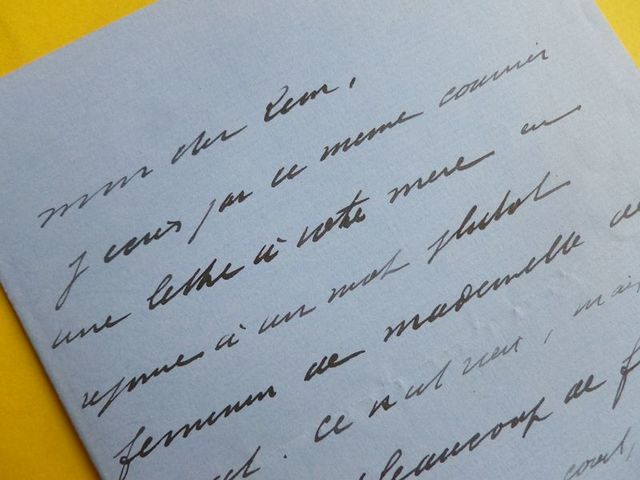 mon cher
j'écris par ce meme courrier
une lettre à votre mere en
reponse à un mot plutot
feminin de mademoiselle de
. ce n'est rien, mais
beaucoup de f
court,